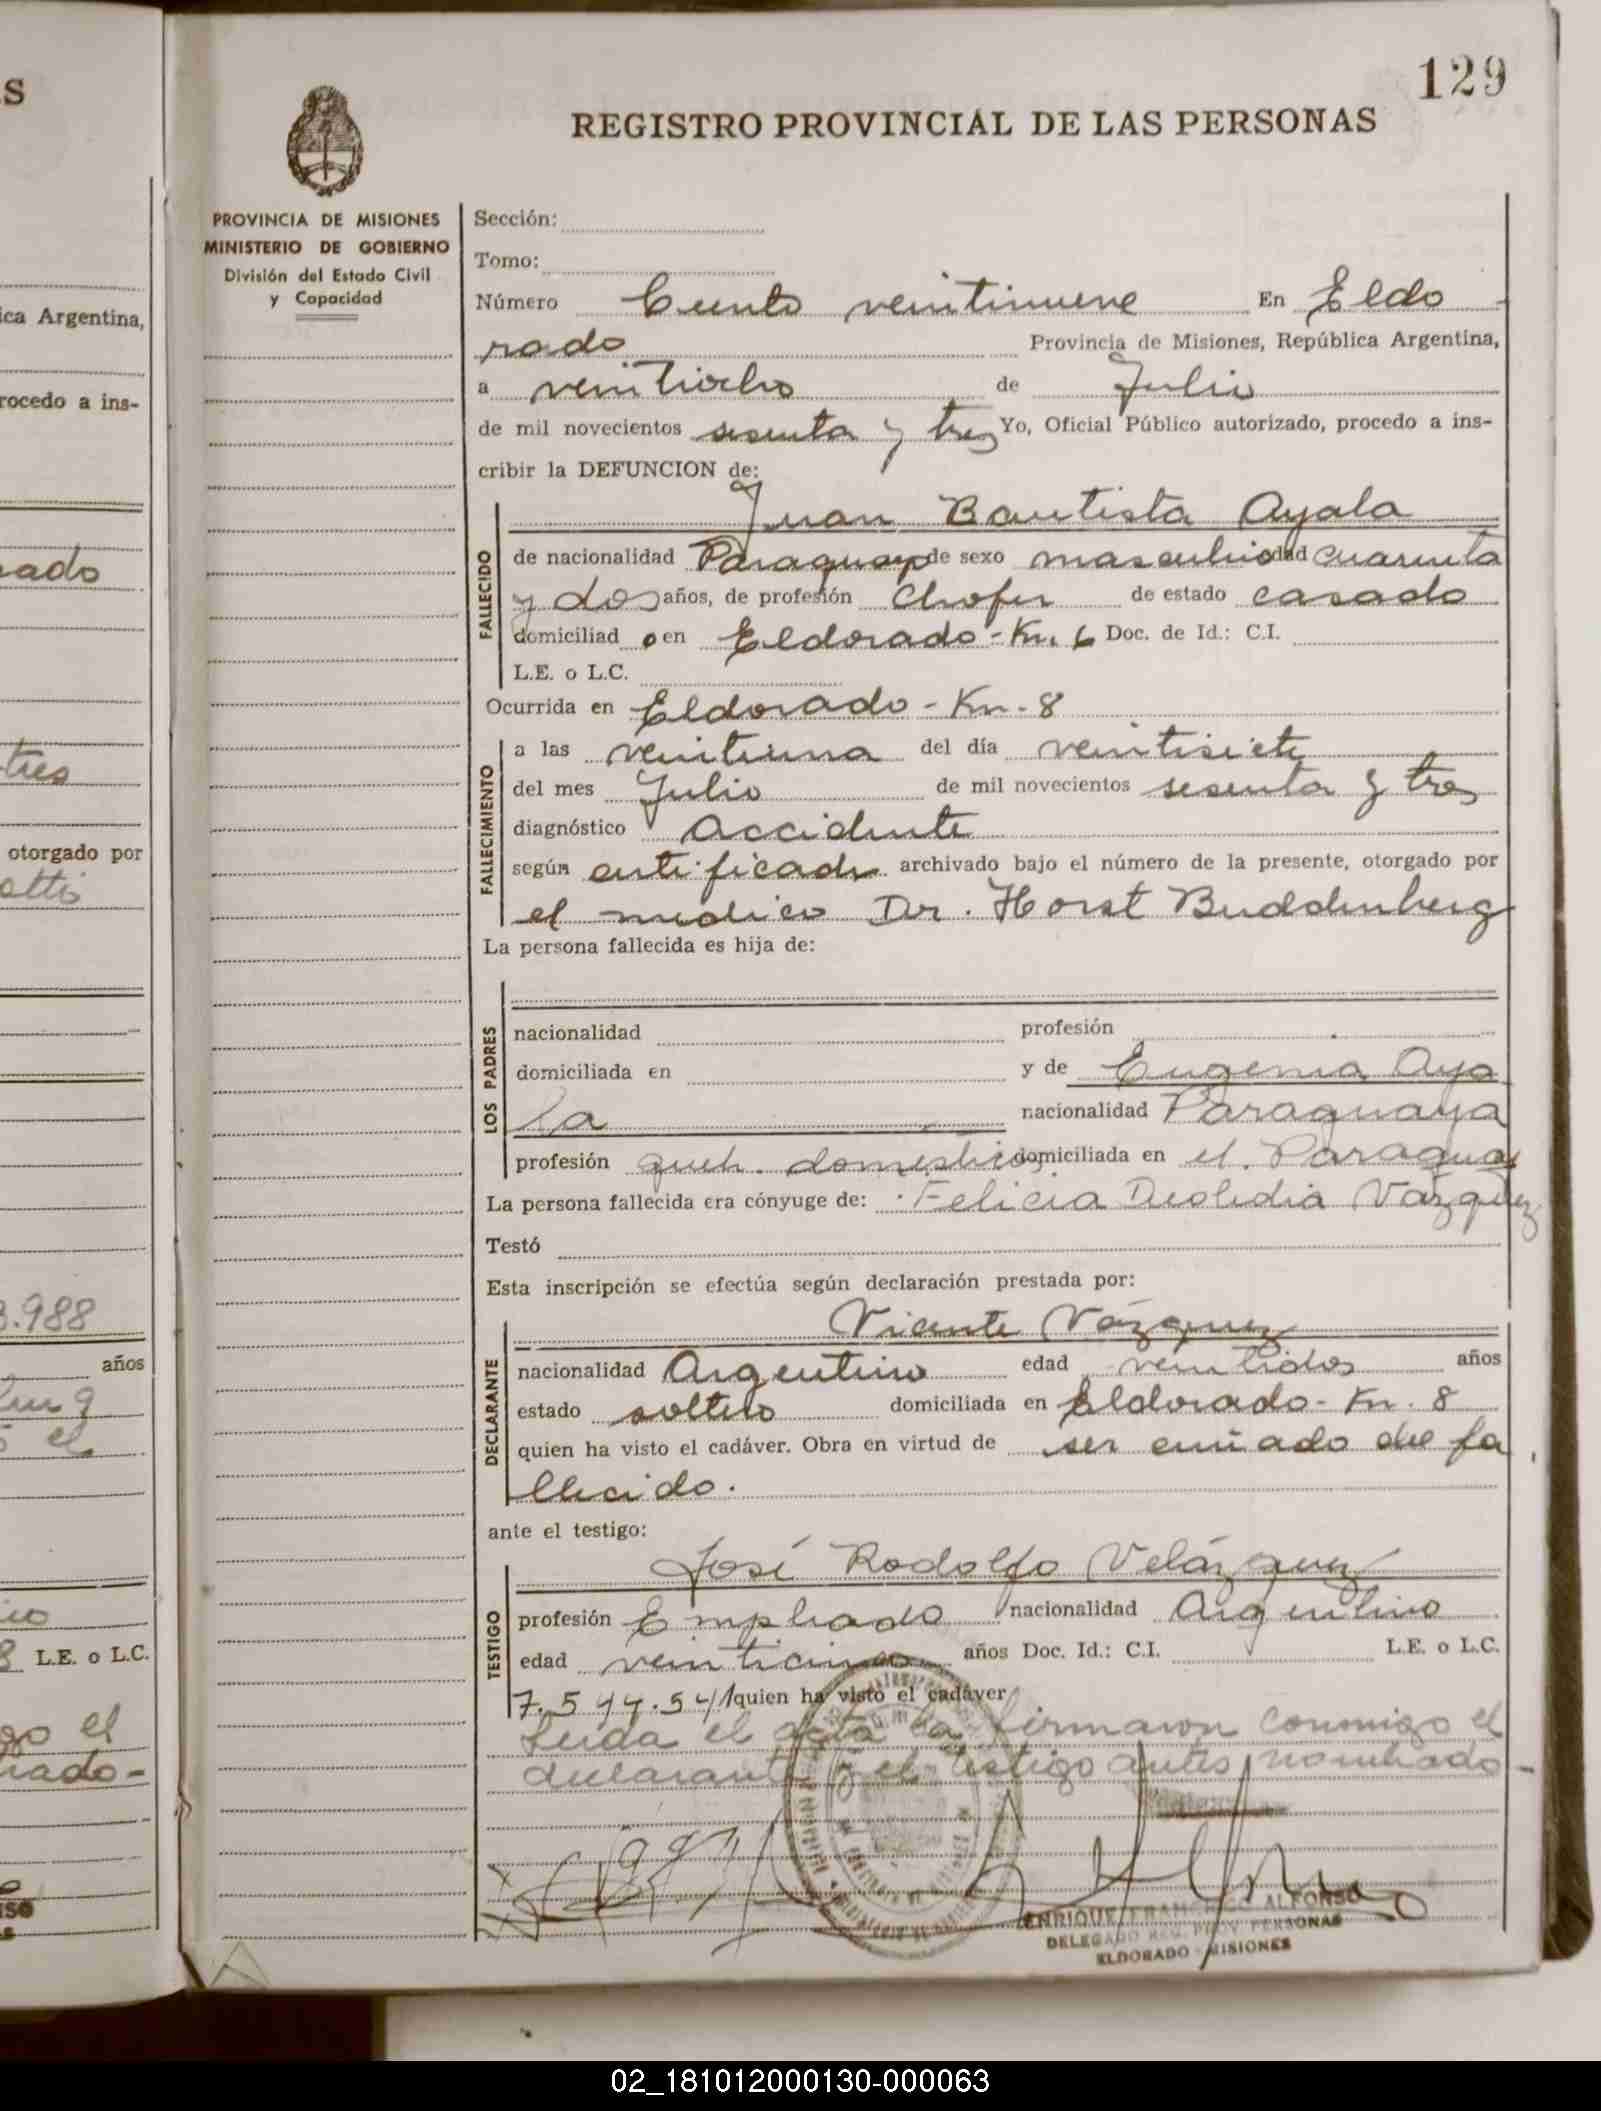 129
REGISTRO PROVINCIAL DE LAS PERSONAS
PROVINCIA DE MISIONES
MINISTERIO DE GOBIERNO
División del Estado Civil
y Capacidad
Sección:
Tomo:
Número Ciento veintinueve En Eldo
rado Provincia de Misiones, República Argentina,
a veintiocho de Julio
de mil novecientos sesenta y tres Yo, Oficial Público autorizado, procedo a ins-
cribir la DEFUNCION de:
Juan Bautista Ayala
FALLECIDO
de nacionalidad Paraguay de sexo masculino edad cuarenta
y dos años, de profesión Chofer de estado casado
domiciliad o en Eldorado - Km. 6 Doc. de Id.: C.I.
L.E. o L.C.
Ocurrida en Eldorado - Km - 8
FALLECIMIENTO
a las veintiuna del día veintisiete
del mes Julio de mil novecientos sesenta y tres
diagnóstico Accidente
según certificado archivado bajo el número de la presente, otorgado por
el medico Dr. Horst Buddenberg
La persona fallecida es hija de:
LOS PADRES
nacionalidad profesión
domiciliada en y de Eugenia Aya
la nacionalidad Paraguaya
profesión queh. domésticos domiciliada en el Paraguay
La persona fallecida era cónyuge de: Felicia Vázquez
Testó
Esta inscripción se efectúa según declaración prestada por:
Vicente Vázquez
DECLARANTE
nacionalidad Argentino edad veintidos años
estado soltero domiciliada en Eldorado - Km. 8
quien ha visto el cadáver. Obra en virtud de ser cuñado del fa
llecido.
ante el testigo:
José Rodolfo Velázquez
TESTIGO
profesión Empleado nacionalidad Argentino
edad veinticinco años Doc. Id.: C.I. L.E. o L.C.
quien ha visto el cadáver
Leida el acta la firmaron conmigo el
declarante y el testigo antes nombrado -
ENRIQUE FRANCISCO ALFONSO
DELEGADO REG. PROV. PERSONAS
ELDORADO - MISIONES
AS
ica Argentina,
rocedo a ins-
rado
tres
otorgado por
otti
8.988
años
L.E. o L.C.
go el
rado-
02_181012000130-000063